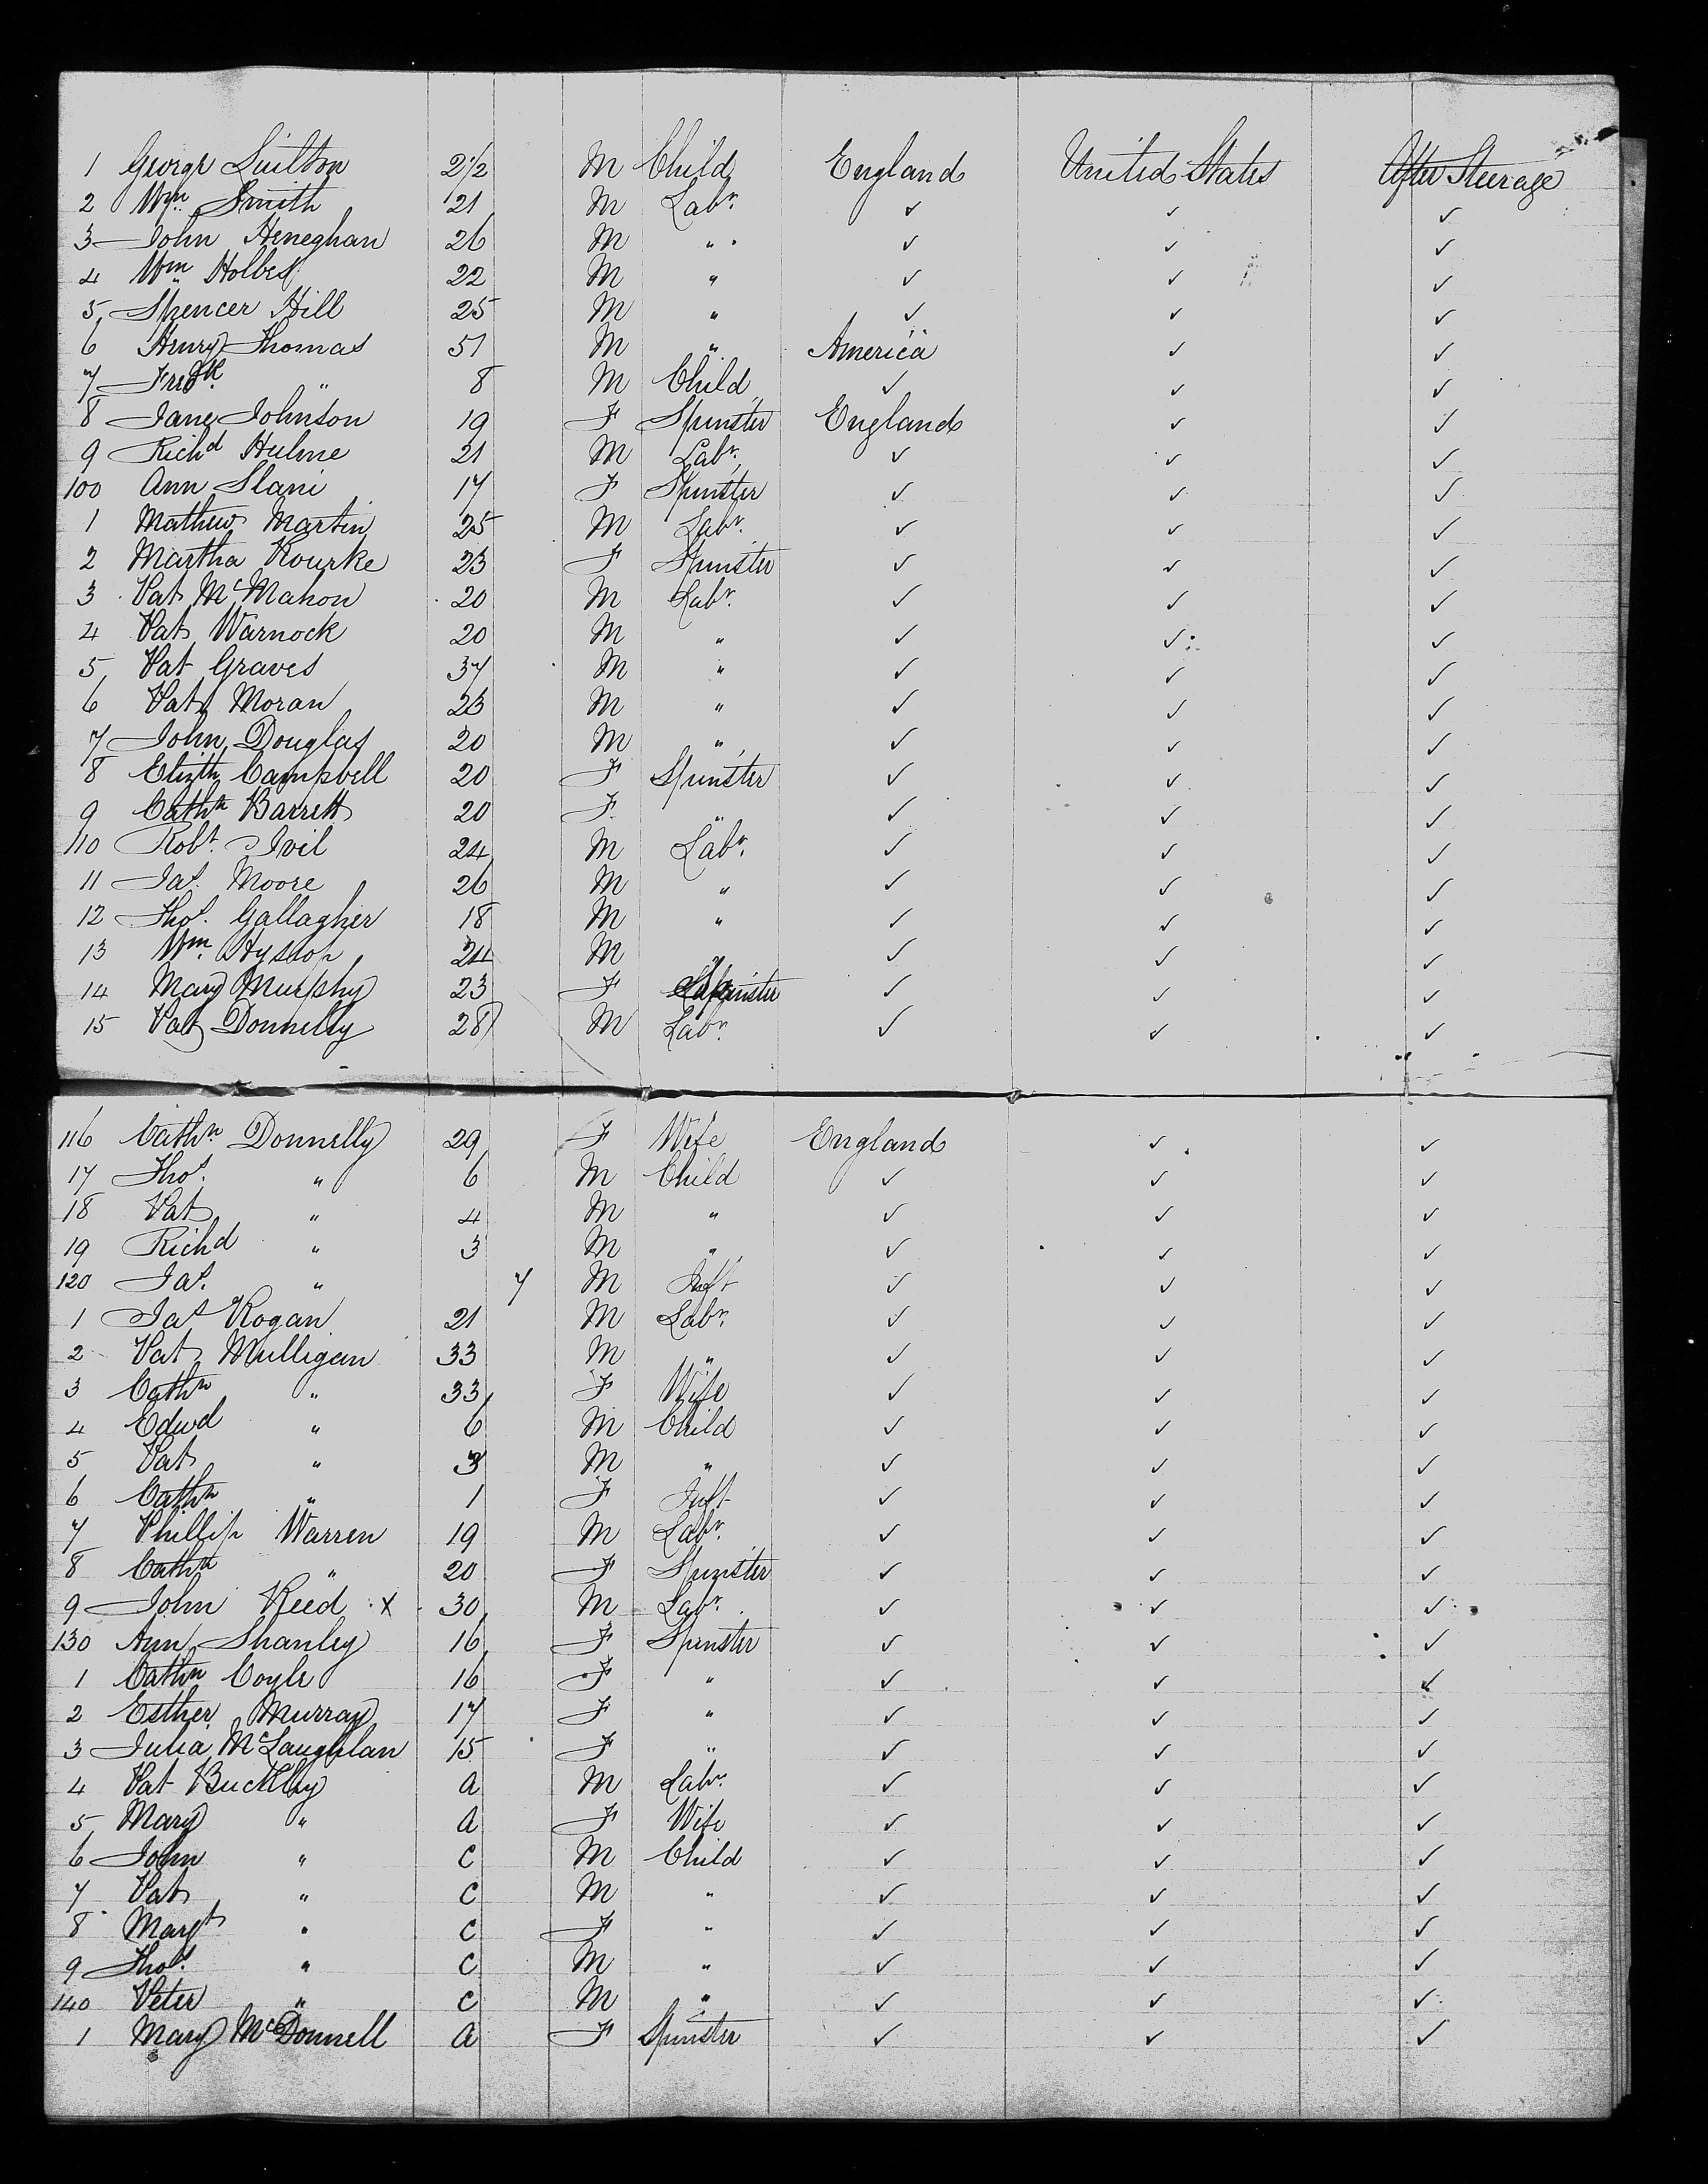 1 George Luilton 2½ M Child England United States After Steerage
2 Wm Smith 21 M Labr. ✓ ✓ ✓
3 John Heneghan 26 M " ✓ ✓ ✓
4 Wm Holbes 22 M " ✓ ✓ ✓
5 Spencer Hill 25 M " ✓ ✓ ✓
6 Henry Thomas 51 M " America ✓ ✓
7 Fredk. " 8 M Child ✓ ✓ ✓
8 Jane Johnson 19 F Spinster England ✓ ✓
9 Richd Hulme 21 M Labr. ✓ ✓ ✓
100 Ann Slani 17 F Spinster ✓ ✓ ✓
1 Mathew Martin 25 M Labr. ✓ ✓ ✓
2 Martha Rourke 23 F Spinster ✓ ✓ ✓
3 Pat McMahon 20 M Labr. ✓ ✓ ✓
4 Pat Warnock 20 M " ✓ ✓ ✓
5 Pat Graves 37 M " ✓ ✓ ✓
6 Pat Moran 23 M " ✓ ✓ ✓
7 John Douglas 20 M " ✓ ✓ ✓
8 Elizth Campbell 20 F Spinster ✓ ✓ ✓
9 Cathn Barrett 20 F " ✓ ✓ ✓
110 Robt. Ivil 24 M Labr. ✓ ✓ ✓
11 Jas. Moore 26 M " ✓ ✓ ✓
12 Thos. Gallagher 18 M " ✓ ✓ ✓
13 Wm. Hyssop 24 M " ✓ ✓ ✓
14 Mary Murphy 23 F Spinster ✓ ✓ ✓
15 Pat Donnelly 28 M Labr. ✓ ✓ ✓
116 Cathn Donnelly 29 F Wife England ✓ ✓
17 Thos. " 6 M Child ✓ ✓ ✓
18 Pat " 4 M " ✓ ✓ ✓
19 Richd " 3 M " ✓ ✓ ✓
120 Jas. " 7 M Inft ✓ ✓ ✓
1 Jas Rogan 21 M Labr. ✓ ✓ ✓
2 Pat Mulligan 33 M " ✓ ✓ ✓
3 Cathn " 33 F Wife ✓ ✓ ✓
4 Edwd " 6 M Child ✓ ✓ ✓
5 Pat " 3 M " ✓ ✓ ✓
6 Cathn " 1 F Inft ✓ ✓ ✓
7 Phillip Warren 19 M Labr. ✓ ✓ ✓
8 Cathn " 20 F Spinster ✓ ✓ ✓
9 John Reed x 30 M Labr. ✓ ✓ ✓
130 Ann Shanley 16 F Spinster ✓ ✓ ✓
1 Cathn Coyle 16 F " ✓ ✓ ✓
2 Esther Murray 17 F " ✓ ✓ ✓
3 Julia McLaughlan 15 F " ✓ ✓ ✓
4 Pat Buckley a M Labr. ✓ ✓ ✓
5 Mary " a F Wife ✓ ✓ ✓
6 John " c M Child ✓ ✓ ✓
7 Pat " c M " ✓ ✓ ✓
8 Margt " c F " ✓ ✓ ✓
9 Thos. " c M " ✓ ✓ ✓
140 Peter " c M " ✓ ✓ ✓
1 Mary McDonnell a F Spinster ✓ ✓ ✓